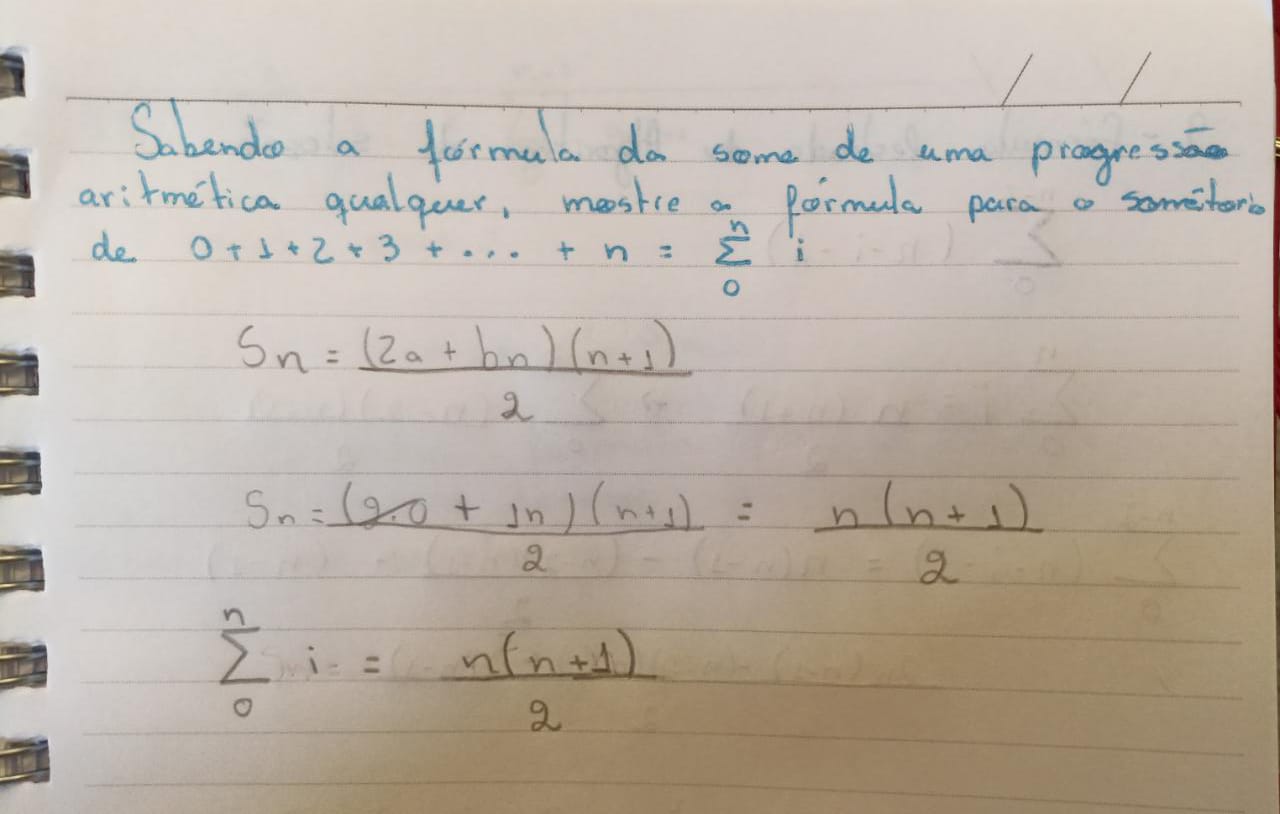 Sabendo a fórmula da soma de uma progressão
aritmética qualquer, mostre a fórmula para o somatório
de 0 + 1 + 2 + 3 + ... + n = \sum_{0}^{n} i
Sn = \frac{(2a + bn)(n+1)}{2}
Sn = \frac{(2.0 + 1n)(n+1)}{2} = \frac{n(n+1)}{2}
\sum_{0}^{n} i = \frac{n(n+1)}{2}